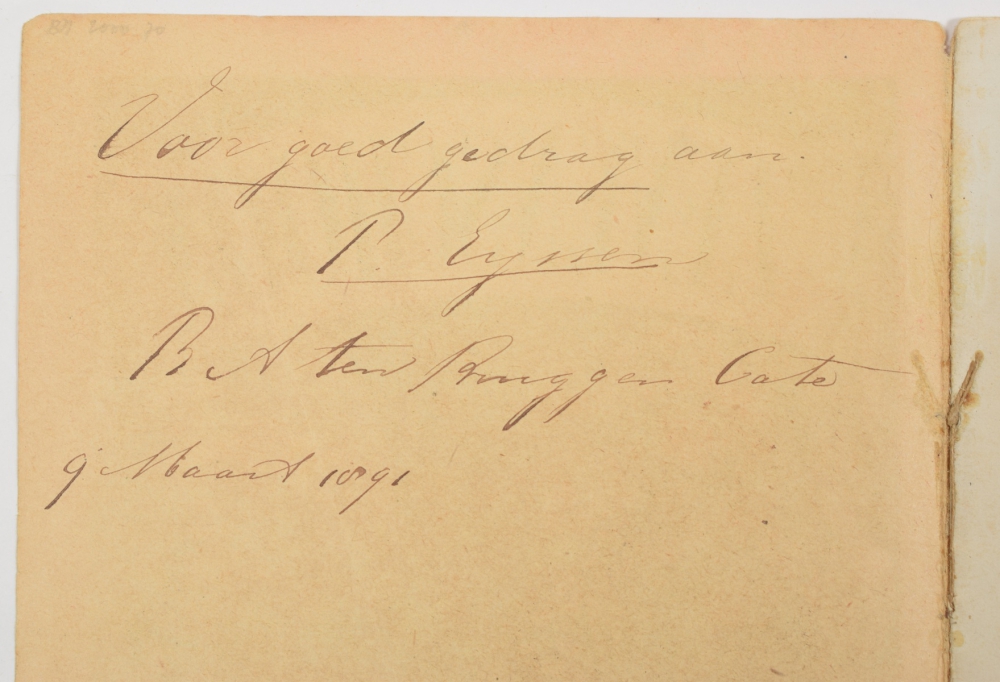 Voor goed gedrag aan.
P. Eyssen
B A ten Bruggen Cate
9 Maart 1891